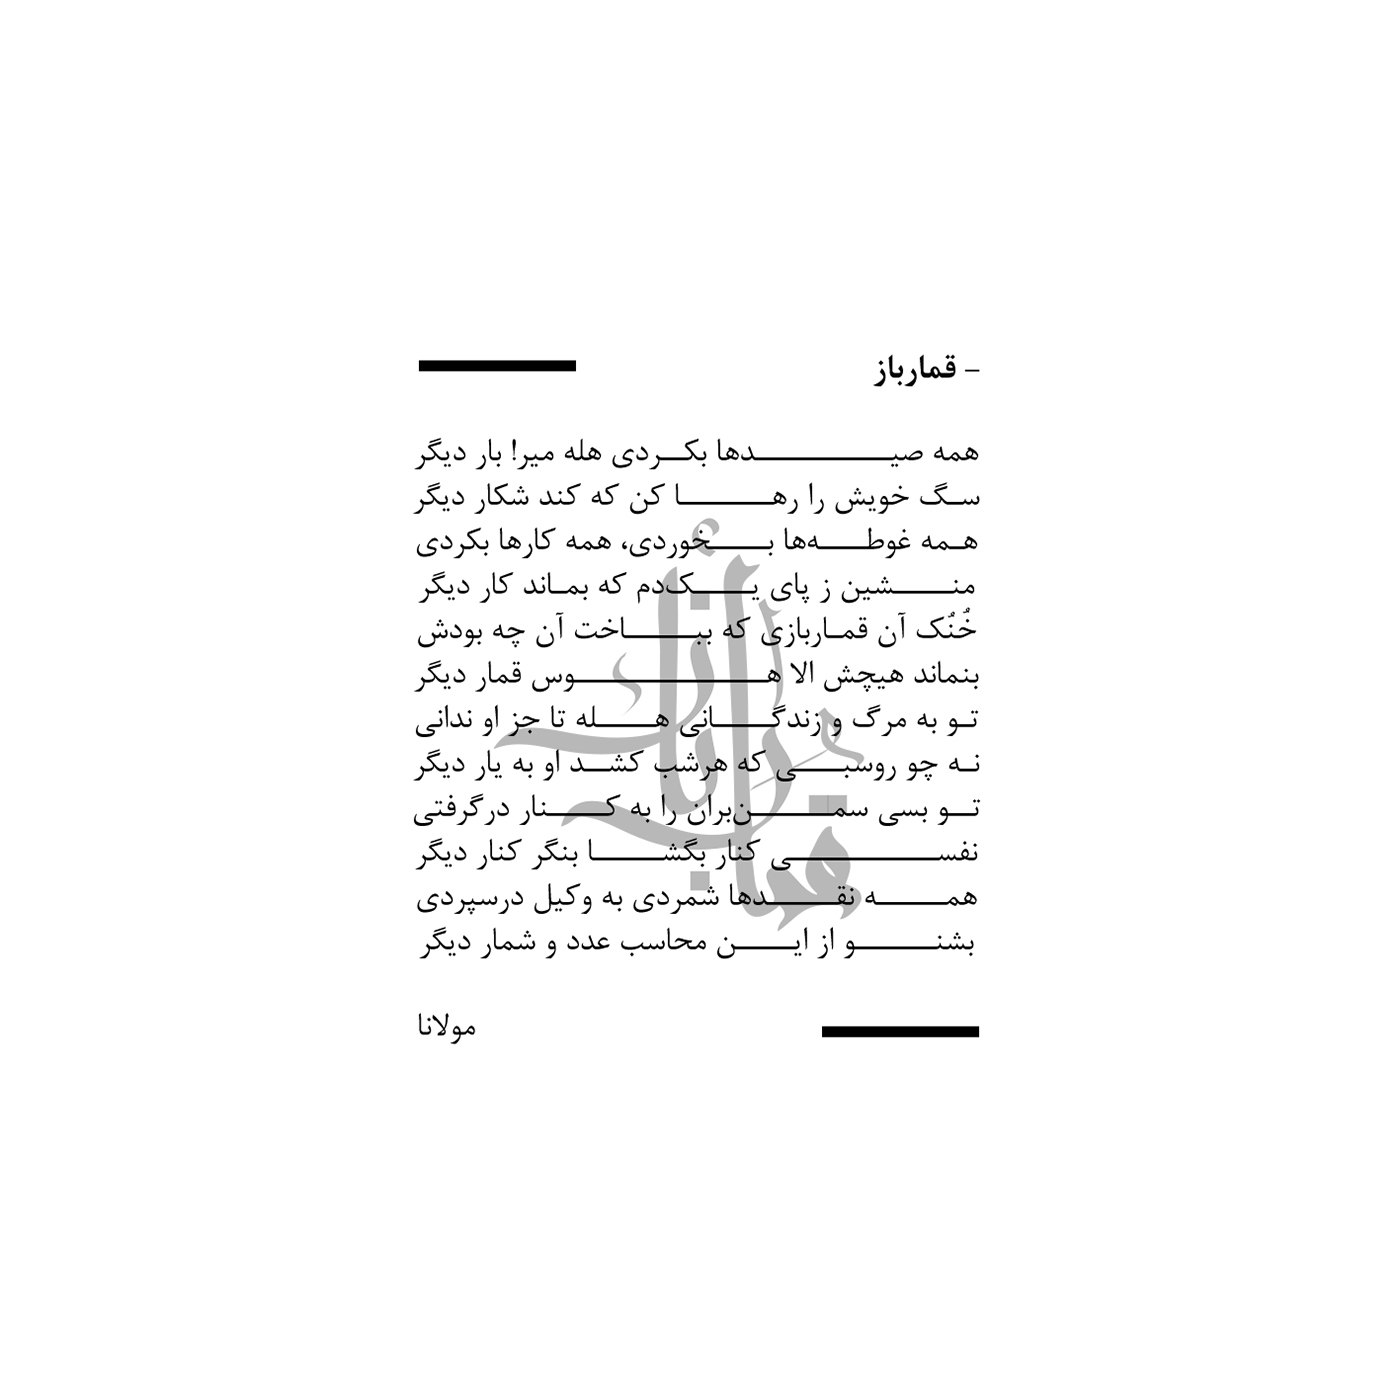 – قمارباز
همه صیدها بکردی هله میر! بار دیگر
سگ خویش را رها کن که کند شکار دیگر
همه غوطه‌ها بخوردی، همه کارها بکردی
منشین ز پای یک‌دم که بماند کار دیگر
خُنُک آن قماربازی که بباخت آن چه بودش
بنماند هیچش الا هوس قمار دیگر
تو به مرگ و زندگانی هله تا جز او ندانی
نه چو روسبی که هرشب کشد او به یار دیگر
تو بسی سمن‌بران را به کنار درگرفتی
نفسی کنار بگشا بنگر کنار دیگر
همه نقدها شمردی به وکیل درسپردی
بشنو از این محاسب عدد و شمار دیگر
مولانا